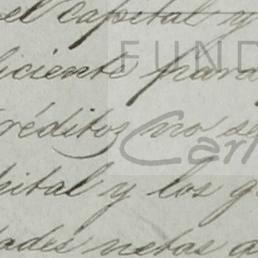 el capital y
iciente para
réditos no se
pital y los g
dades netas a
FUND
Carl